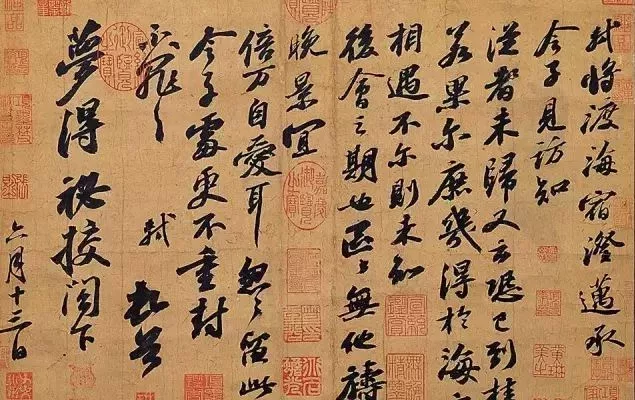 軾將渡海宿澄邁承
令子見訪知
從者未歸又云恐已到桂
若果尔庶幾得於海
相遇不尔則未知
後會之期也區々無他禱
晚景宜
倍万自愛耳怱々留此
令子處更不重封
不罪々
軾 頓首
夢得祕校閣下
六月十三日